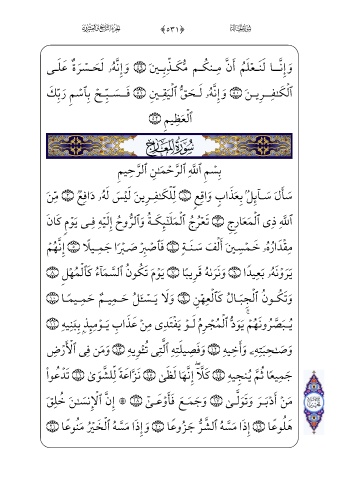 سُورَةُ المَعَارِجِ ﴿٥٣١﴾ الجزء التاسع والعشرون
وَإِنَّا لَنَعْلَمُ أَنَّ مِنكُم مُّكَذِّبِينَ ۝ وَإِنَّهُۥ لَحَسْرَةٌ عَلَى
ٱلْكَـٰفِرِينَ ۝ وَإِنَّهُۥ لَحَقُّ ٱلْيَقِينِ ۝ فَسَبِّحْ بِٱسْمِ رَبِّكَ
ٱلْعَظِيمِ ۝
سُورَةُ المَعَارِجِ
بِسْمِ ٱللَّهِ ٱلرَّحْمَـٰنِ ٱلرَّحِيمِ
سَأَلَ سَآئِلٌۢ بِعَذَابٍ وَاقِعٍ ۝ لِّلْكَـٰفِرِينَ لَيْسَ لَهُۥ دَافِعٌ ۝ مِّنَ
ٱللَّهِ ذِى ٱلْمَعَارِجِ ۝ تَعْرُجُ ٱلْمَلَـٰٓئِكَةُ وَٱلرُّوحُ إِلَيْهِ فِى يَوْمٍ كَانَ
مِقْدَارُهُۥ خَمْسِينَ أَلْفَ سَنَةٍ ۝ فَٱصْبِرْ صَبْرًا جَمِيلًا ۝ إِنَّهُمْ
يَرَوْنَهُۥ بَعِيدًا ۝ وَنَرَىٰهُ قَرِيبًا ۝ يَوْمَ تَكُونُ ٱلسَّمَآءُ كَٱلْمُهْلِ ۝
وَتَكُونُ ٱلْجِبَالُ كَٱلْعِهْنِ ۝ وَلَا يَسْـَٔلُ حَمِيمٌ حَمِيمًا ۝
يُبَصَّرُونَهُمْ ۚ يَوَدُّ ٱلْمُجْرِمُ لَوْ يَفْتَدِى مِنْ عَذَابِ يَوْمِئِذٍۭ بِبَنِيهِ ۝
وَصَـٰحِبَتِهِۦ وَأَخِيهِ ۝ وَفَصِيلَتِهِ ٱلَّتِى تُـْٔوِيهِ ۝ وَمَن فِى ٱلْأَرْضِ
جَمِيعًا ثُمَّ يُنجِيهِ ۝ كَلَّآ ۖ إِنَّهَا لَظَىٰ ۝ نَزَّاعَةً لِّلشَّوَىٰ ۝ تَدْعُوا۟
مَنْ أَدْبَرَ وَتَوَلَّىٰ ۝ وَجَمَعَ فَأَوْعَىٰٓ ۝ ۞ إِنَّ ٱلْإِنسَـٰنَ خُلِقَ
هَلُوعًا ۝ إِذَا مَسَّهُ ٱلشَّرُّ جَزُوعًا ۝ وَإِذَا مَسَّهُ ٱلْخَيْرُ مَنُوعًا ۝